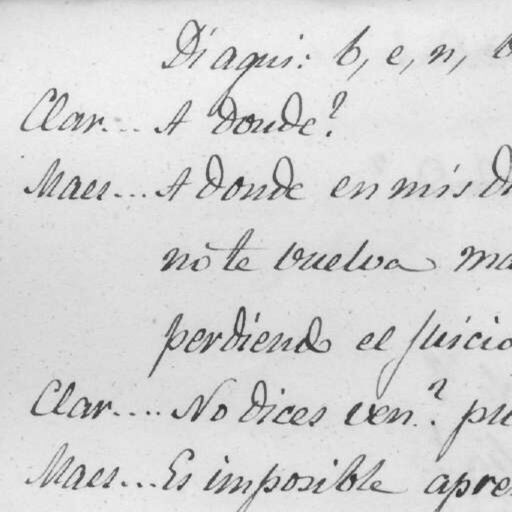 Di aqui: b, e, n,
Clar... A donde?
Maes... A donde en mis
no te vuelva
perdiendo el juicio
Clar.... No dices ven?
Maes... Es imposible